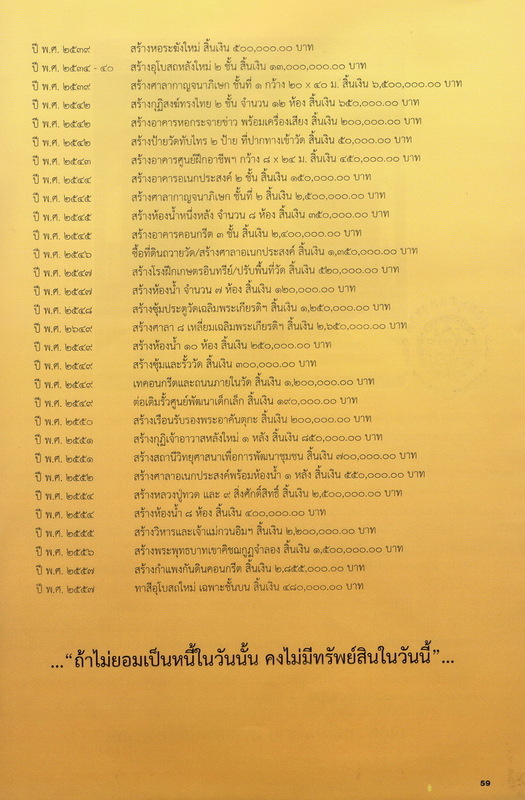 ปี พ.ศ. ๒๕๓๙ สร้างหอระฆังใหม่ สิ้นเงิน ๕๐๐,๐๐๐.๐๐ บาท
ปี พ.ศ. ๒๕๓๔ - ๔๐ สร้างอุโบสถหลังใหม่ ๒ ชั้น สิ้นเงิน ๑๓,๐๐๐,๐๐๐.๐๐ บาท
ปี พ.ศ. ๒๕๓๙ สร้างศาลากาญจนาภิเษก ชั้นที่ ๑ กว้าง ๒๐ x ๔๐ ม. สิ้นเงิน ๖,๕๐๐,๐๐๐.๐๐ บาท
ปี พ.ศ. ๒๕๔๒ สร้างกุฏิสงฆ์ทรงไทย ๒ ชั้น จำนวน ๑๒ ห้อง สิ้นเงิน ๖๕๐,๐๐๐.๐๐ บาท
ปี พ.ศ. ๒๕๔๒ สร้างอาคารหอกระจายข่าว พร้อมเครื่องเสียง สิ้นเงิน ๒๐๐,๐๐๐.๐๐ บาท
ปี พ.ศ. ๒๕๔๒ สร้างป้ายวัดทับไทร ๒ ป้าย ที่ปากทางเข้าวัด สิ้นเงิน ๕๐,๐๐๐.๐๐ บาท
ปี พ.ศ. ๒๕๔๓ สร้างอาคารศูนย์ฝึกอาชีพฯ กว้าง ๘ x ๒๔ ม. สิ้นเงิน ๔๕๐,๐๐๐.๐๐ บาท
ปี พ.ศ. ๒๕๔๔ สร้างอาคารอเนกประสงค์ ๒ ชั้น สิ้นเงิน ๑๕๐,๐๐๐.๐๐ บาท
ปี พ.ศ. ๒๕๔๕ สร้างศาลากาญจนาภิเษก ชั้นที่ ๒ สิ้นเงิน ๒,๕๐๐,๐๐๐.๐๐ บาท
ปี พ.ศ. ๒๕๔๕ สร้างห้องน้ำหนึ่งหลัง จำนวน ๘ ห้อง สิ้นเงิน ๓๕๐,๐๐๐.๐๐ บาท
ปี พ.ศ. ๒๕๔๕ สร้างอาคารคอนกรีต ๓ ชั้น สิ้นเงิน ๒,๔๐๐,๐๐๐.๐๐ บาท
ปี พ.ศ. ๒๕๔๖ ซื้อที่ดินถวายวัด/สร้างศาลาอเนกประสงค์ สิ้นเงิน ๑,๓๕๐,๐๐๐.๐๐ บาท
ปี พ.ศ. ๒๕๔๗ สร้างโรงฝึกเกษตรอินทรีย์/ปรับพื้นที่วัด สิ้นเงิน ๕๒๐,๐๐๐.๐๐ บาท
ปี พ.ศ. ๒๕๔๗ สร้างห้องน้ำ จำนวน ๗ ห้อง สิ้นเงิน ๑๒๐,๐๐๐.๐๐ บาท
ปี พ.ศ. ๒๕๔๘ สร้างซุ้มประตูวัดเฉลิมพระเกียรติฯ สิ้นเงิน ๑,๒๕๐,๐๐๐.๐๐ บาท
ปี พ.ศ. ๒๖๔๙ สร้างศาลา ๘ เหลี่ยมเฉลิมพระเกียรติฯ สิ้นเงิน ๒,๖๕๐,๐๐๐.๐๐ บาท
ปี พ.ศ. ๒๕๔๙ สร้างห้องน้ำ ๑๐ ห้อง สิ้นเงิน ๒๕๐,๐๐๐.๐๐ บาท
ปี พ.ศ. ๒๕๔๙ สร้างซุ้มและรั้ววัด สิ้นเงิน ๓๐๐,๐๐๐.๐๐ บาท
ปี พ.ศ. ๒๕๔๙ เทคอนกรีตและถนนภายในวัด สิ้นเงิน ๑,๒๐๐,๐๐๐.๐๐ บาท
ปี พ.ศ. ๒๕๔๙ ต่อเติมรั้วศูนย์พัฒนาเด็กเล็ก สิ้นเงิน ๑๙๐,๐๐๐.๐๐ บาท
ปี พ.ศ. ๒๕๕๐ สร้างเรือนรับรองพระอาคันตุกะ สิ้นเงิน ๒๐๐,๐๐๐.๐๐ บาท
ปี พ.ศ. ๒๕๕๑ สร้างกุฏิเจ้าอาวาสหลังใหม่ ๑ หลัง สิ้นเงิน ๘๕๐,๐๐๐.๐๐ บาท
ปี พ.ศ. ๒๕๕๑ สร้างสถานีวิทยุศาสนาเพื่อการพัฒนาชุมชน สิ้นเงิน ๗๐๐,๐๐๐.๐๐ บาท
ปี พ.ศ. ๒๕๕๒ สร้างศาลาอเนกประสงค์พร้อมห้องน้ำ ๑ หลัง สิ้นเงิน ๕๕๐,๐๐๐.๐๐ บาท
ปี พ.ศ. ๒๕๕๔ สร้างหลวงปู่ทวด และ ๙ สิ่งศักดิ์สิทธิ์ สิ้นเงิน ๒,๕๐๐,๐๐๐.๐๐ บาท
ปี พ.ศ. ๒๕๕๔ สร้างห้องน้ำ ๘ ห้อง สิ้นเงิน ๔๐๐,๐๐๐.๐๐ บาท
ปี พ.ศ. ๒๕๕๕ สร้างวิหารและเจ้าแม่กวนอิมฯ สิ้นเงิน ๒,๒๐๐,๐๐๐.๐๐ บาท
ปี พ.ศ. ๒๕๕๖ สร้างพระพุทธบาทเขาคิชฌกูฏจำลอง สิ้นเงิน ๑,๕๐๐,๐๐๐.๐๐ บาท
ปี พ.ศ. ๒๕๕๗ สร้างกำแพงกันดินคอนกรีต สิ้นเงิน ๒,๘๕๕,๐๐๐.๐๐ บาท
ปี พ.ศ. ๒๕๕๗ ทาสีอุโบสถใหม่ เฉพาะชั้นบน สิ้นเงิน ๔๘๐,๐๐๐.๐๐ บาท
...“ถ้าไม่ยอมเป็นหนี้ในวันนั้น คงไม่มีทรัพย์สินในวันนี้”...
59